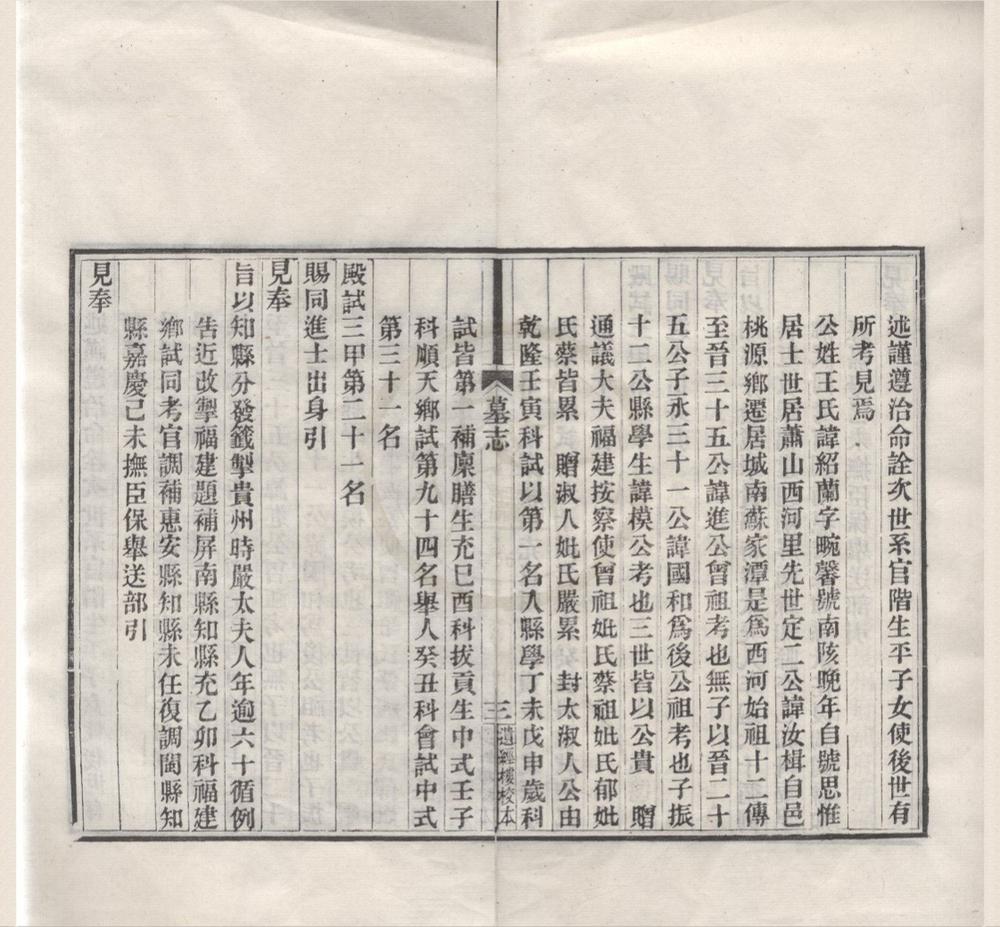 述謹遵治命詮次世系官階生平子女使後世有
所考見焉
公姓王氏諱紹蘭字畹馨號南陔晚年自號思惟
居士世居蕭山西河里先世定二公諱汝楫自邑
桃源鄉遷居城南蘇家潭是爲西河始祖十二傳
至晉三十五公諱進公曾祖考也無子以晉二十
五公子永三十一公諱國和爲後公祖考也子振
十二公縣學生諱模公考也三世皆以公貴　贈
通議大夫福建按察使曾祖妣氏蔡祖妣氏郁妣
氏蔡皆累　贈淑人妣氏嚴累　封太淑人公由
乾隆壬寅科試以第一名入縣學丁未戊申歲科
墓志
三
遺經樓校本
試皆第一補廩膳生充巳酉科拔貢生中式壬子
科順天鄉試第九十四名舉人癸丑科會試中式
第三十一名
殿試三甲第二十一名
賜同進士出身引
見奉
旨以知縣分發籤掣貴州時嚴太夫人年逾六十循例
告近改掣福建題補屏南縣知縣充乙卯科福建
鄉試同考官調補惠安縣知縣未任復調閩縣知
縣嘉慶己未撫臣保舉送部引
見奉